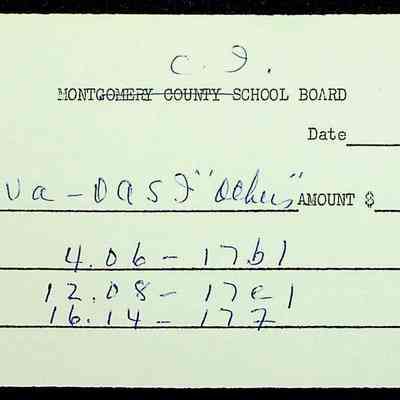 C. I.
MONTGOMERY COUNTY SCHOOL BOARD
Date
Va - OASI "Other" AMOUNT $
4.06 - 17b1
12.08 - 17c1
16.14 - 177